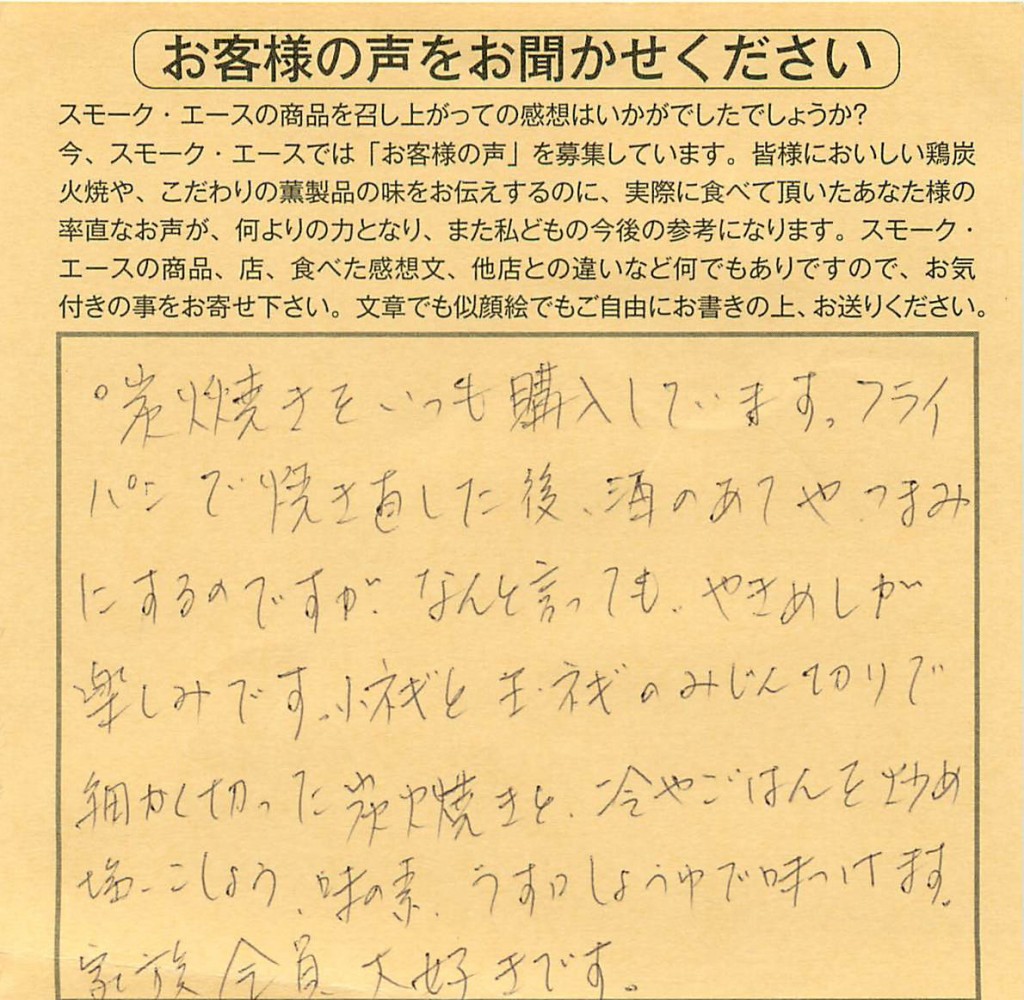 お客様の声をお聞かせください
スモーク・エースの商品を召し上がっての感想はいかがでしたでしょうか?
今、スモーク・エースでは「お客様の声」を募集しています。皆様においしい鶏炭
火焼や、こだわりの薫製品の味をお伝えするのに、実際に食べて頂いたあなた様の
率直なお声が、何よりの力となり、また私どもの今後の参考になります。スモーク・
エースの商品、店、食べた感想文、他店との違いなど何でもありですので、お気
付きの事をお寄せ下さい。文章でも似顔絵でもご自由にお書きの上、お送りください。
°炭火焼きをいつも購入しています。フライ
パンで焼き直した後、酒のあてや、つまみ
にするのですが、なんと言っても、やきめしが
楽しみです。小ネギと玉ネギのみじん切りで
細かく切った炭火焼きと、冷やごはんを炒め
塩、こしょう、味の素、うす口しょうゆで味つけます。
家族全員大好きです。